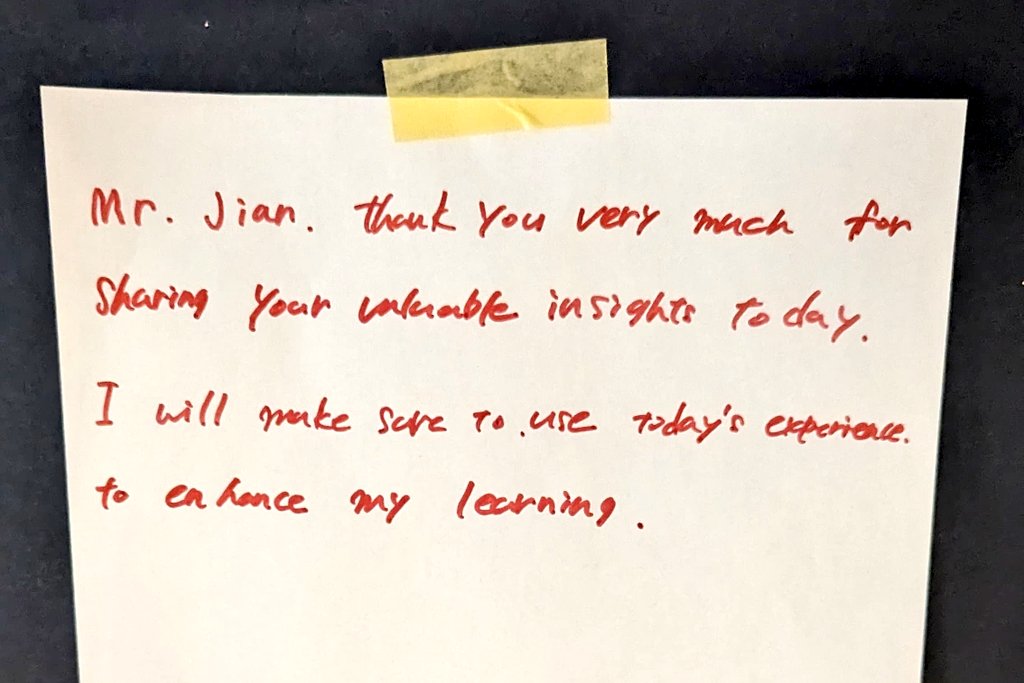 Mr. Jian. thank you very much for
sharing your valuable insights today.
I will make sure to use today's experience.
to enhance my learning.